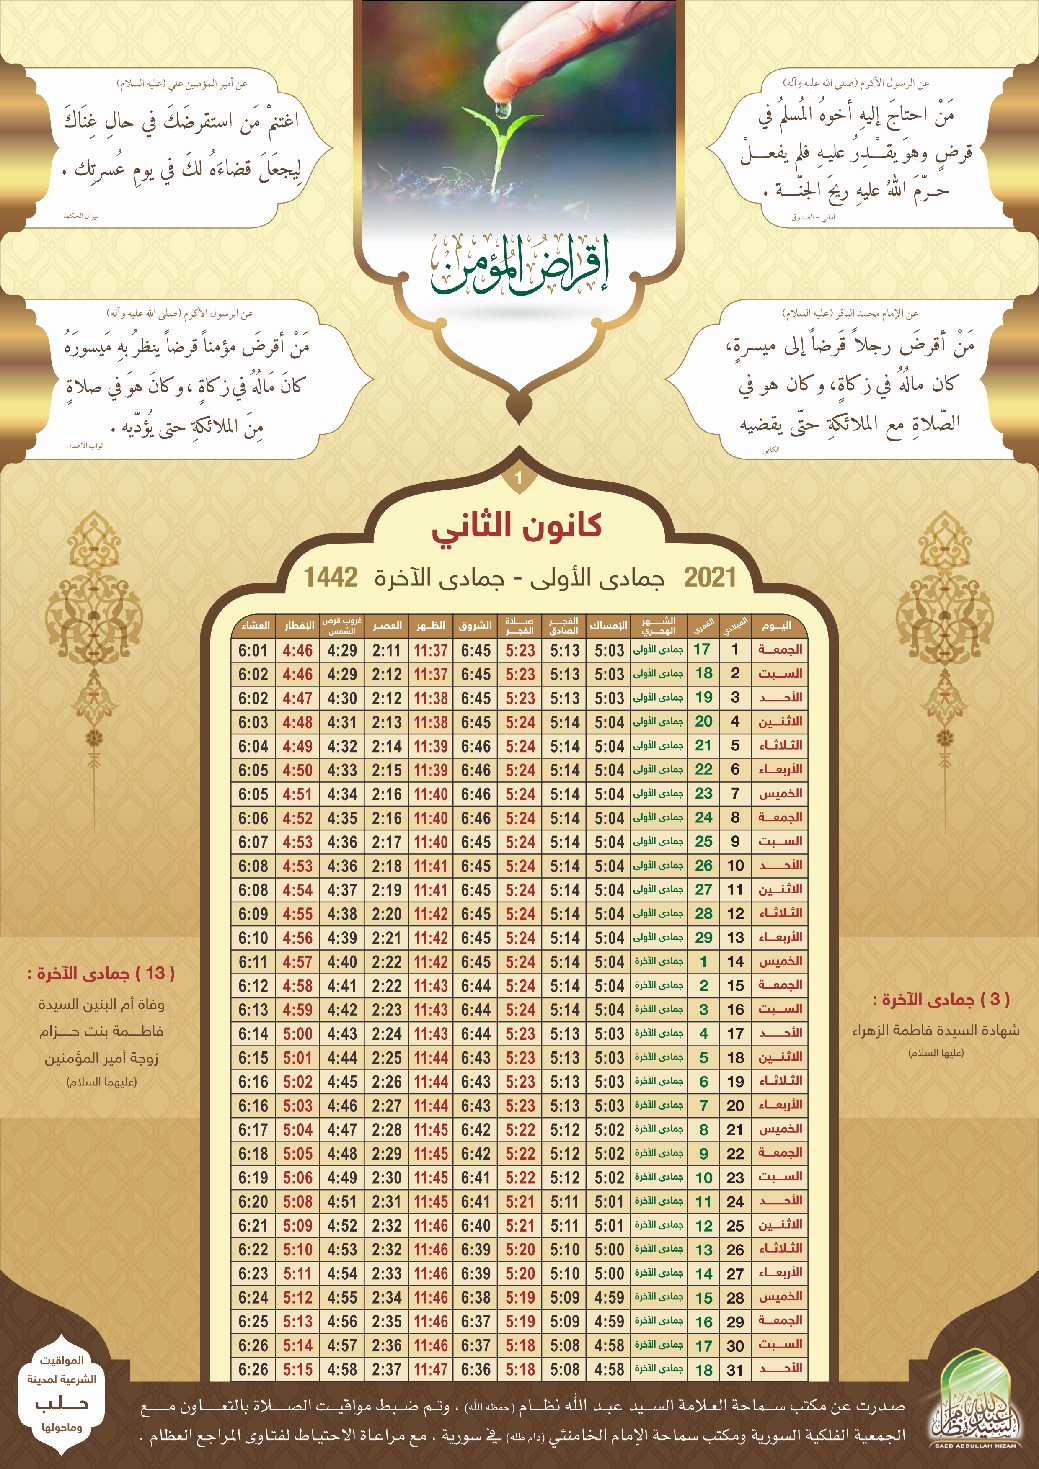 عن الرسول الأكرم (صلى الله عليه وآله)
مَنْ احتاجَ إليهِ أخوهُ المُسلمُ في
قرضٍ وهوَ يقـْـدِرُ عليـهِ فلم يفعـــلْ
حـــرّمَ اللهُ عليهِ ريحَ الجنّـــة .
أمالي - الصدوق
عن أمير المؤمنين علي (عليه السلام)
اغتنمْ مَن استقرضَكَ في حالِ غِنَاكَ
لِيجعَلَ قضاءَهُ لكَ في يومِ عُسرتِك .
ميزان الحكمة
إقراض المؤمن
عن الإمام محمد الباقر (عليه السلام)
مَنْ أقرضَ رجلاً قَرضاً إلى ميسرةٍ،
كان مالُهُ في زكاةٍ، وكان هو في
الصّلاةِ مع الملائكةِ حتّى يقضيه
الكافي
عن الرسول الأكرم (صلى الله عليه وآله)
مَنْ أقرضَ مؤمناً قرضاً ينظرُ بهِ مَيسورَهُ
كانَ مَالُهُ في زكاةٍ ، وكانَ هوَ في صلاةٍ
مِنَ الملائكةِ حتى يُؤدّيه .
ثواب الأعمال
1
كانون الثاني
2021 جمادى الأولى - جمادى الآخرة 1442
اليـوم الميلادي القمري الشـــهر الهجـري الإمساك الفجـــر الصادق صــلاة الفجـــر الشروق الظـهر العصـر غروب قرص الشمس الإفطار العشاء
الجمعـة 1 17 جمادى الأولى 5:03 5:13 5:23 6:45 11:37 2:11 4:29 4:46 6:01
السـبت 2 18 جمادى الأولى 5:03 5:13 5:23 6:45 11:37 2:12 4:29 4:46 6:02
الأحـــد 3 19 جمادى الأولى 5:03 5:13 5:23 6:45 11:38 2:12 4:30 4:47 6:02
الاثنـين 4 20 جمادى الأولى 5:04 5:14 5:24 6:45 11:38 2:13 4:31 4:48 6:03
الثلاثـاء 5 21 جمادى الأولى 5:04 5:14 5:24 6:46 11:39 2:14 4:32 4:49 6:04
الأربعـاء 6 22 جمادى الأولى 5:04 5:14 5:24 6:46 11:39 2:15 4:33 4:50 6:05
الخميس 7 23 جمادى الأولى 5:04 5:14 5:24 6:46 11:40 2:16 4:34 4:51 6:05
الجمعـة 8 24 جمادى الأولى 5:04 5:14 5:24 6:46 11:40 2:16 4:35 4:52 6:06
السـبت 9 25 جمادى الأولى 5:04 5:14 5:24 6:45 11:40 2:17 4:36 4:53 6:07
الأحـــد 10 26 جمادى الأولى 5:04 5:14 5:24 6:45 11:41 2:18 4:36 4:53 6:08
الاثنـين 11 27 جمادى الأولى 5:04 5:14 5:24 6:45 11:41 2:19 4:37 4:54 6:08
الثلاثـاء 12 28 جمادى الأولى 5:04 5:14 5:24 6:45 11:42 2:20 4:38 4:55 6:09
الأربعـاء 13 29 جمادى الأولى 5:04 5:14 5:24 6:45 11:42 2:21 4:39 4:56 6:10
الخميس 14 1 جمادى الآخرة 5:04 5:14 5:24 6:45 11:42 2:22 4:40 4:57 6:11
الجمعـة 15 2 جمادى الآخرة 5:04 5:14 5:24 6:44 11:43 2:22 4:41 4:58 6:12
السـبت 16 3 جمادى الآخرة 5:04 5:14 5:24 6:44 11:43 2:23 4:42 4:59 6:13
الأحـــد 17 4 جمادى الآخرة 5:03 5:13 5:23 6:44 11:43 2:24 4:43 5:00 6:14
الاثنـين 18 5 جمادى الآخرة 5:03 5:13 5:23 6:43 11:44 2:25 4:44 5:01 6:15
الثلاثـاء 19 6 جمادى الآخرة 5:03 5:13 5:23 6:43 11:44 2:26 4:45 5:02 6:16
الأربعـاء 20 7 جمادى الآخرة 5:03 5:13 5:23 6:43 11:44 2:27 4:46 5:03 6:16
الخميس 21 8 جمادى الآخرة 5:02 5:12 5:22 6:42 11:45 2:28 4:47 5:04 6:17
الجمعـة 22 9 جمادى الآخرة 5:02 5:12 5:22 6:42 11:45 2:29 4:48 5:05 6:18
السـبت 23 10 جمادى الآخرة 5:02 5:12 5:22 6:41 11:45 2:30 4:49 5:06 6:19
الأحـــد 24 11 جمادى الآخرة 5:01 5:11 5:21 6:41 11:45 2:31 4:51 5:08 6:20
الاثنـين 25 12 جمادى الآخرة 5:01 5:11 5:21 6:40 11:46 2:32 4:52 5:09 6:21
الثلاثـاء 26 13 جمادى الآخرة 5:00 5:10 5:20 6:39 11:46 2:32 4:53 5:10 6:22
الأربعـاء 27 14 جمادى الآخرة 5:00 5:10 5:20 6:39 11:46 2:33 4:54 5:11 6:23
الخميس 28 15 جمادى الآخرة 4:59 5:09 5:19 6:38 11:46 2:34 4:55 5:12 6:24
الجمعـة 29 16 جمادى الآخرة 4:59 5:09 5:19 6:37 11:46 2:35 4:56 5:13 6:25
السـبت 30 17 جمادى الآخرة 4:58 5:08 5:18 6:37 11:46 2:36 4:57 5:14 6:26
الأحـــد 31 18 جمادى الآخرة 4:58 5:08 5:18 6:36 11:47 2:37 4:58 5:15 6:26
( 3 ) جمادى الآخرة :
شهادة السيدة فاطمة الزهراء
(عليها السلام)
( 13 ) جمادى الآخرة :
وفاة أم البنين السيدة
فاطـــمة بنت حـــزام
زوجة أمير المؤمنين
(عليهما السلام)
صدرت عن مكتب سماحة العلامة السيد عبد الله نظـام (حفظه الله) ، وتم ضبط مواقيت الصـلاة بالتعـاون مــع
الجمعية الفلكية السورية ومكتب سماحة الإمام الخامنئي (دام ظله) في سورية ، مع مراعاة الاحتياط لفتاوى المراجع العظام .
المواقيت
الشرعية لمدينة
حـلـب
وماحولها
السيد عبد الله نظام
SAED ABDULLAH NIZAM